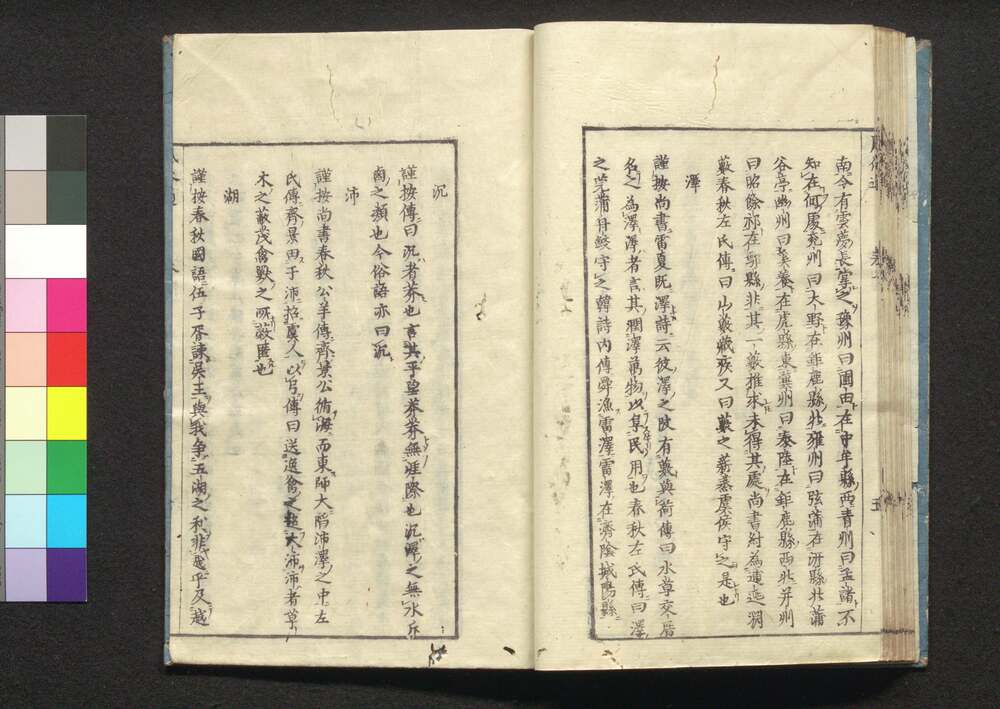 南今有雲夢長掌之豫州曰圃田在中牟縣西青州曰孟諸不
知在何處兗州曰大野在鉅鹿縣北雍州曰弦蒲在汧縣北蒲
谷亭幽州曰奚養在虒縣東冀州曰泰陸在鉅鹿縣西北并州
曰昭餘祁在鄔縣北其一藪推求未得其處尚書紂為逋逃淵
藪春秋左氏傳曰山藪藏疾又曰藪之薪蒸虞候守之是也
澤
謹按尚書雷夏既澤詩云彼澤之陂有蒲與荷傳曰水草交厝
名之為澤澤者言其潤澤萬物以阜民用也春秋左氏傳曰澤
之莞蒲舟鮫守之韓詩內傳舜漁雷澤雷澤在濟陰城陽縣
沆
謹按傳曰沆者莽也言其平望莽莽無涯際也沆澤之無水斥
鹵之類也今俗語亦曰沆
沛
謹按尚書春秋公羊傳齊景公循海而東師大陷沛澤之中左
氏傳齊景田于沛招虞人以弓傳曰送逸禽之超大沛沛者草
木之蔽茂禽獸之所蔽匿也
湖
謹按春秋國語伍子胥諫吳王與我争五湖之利非越乎及越
五